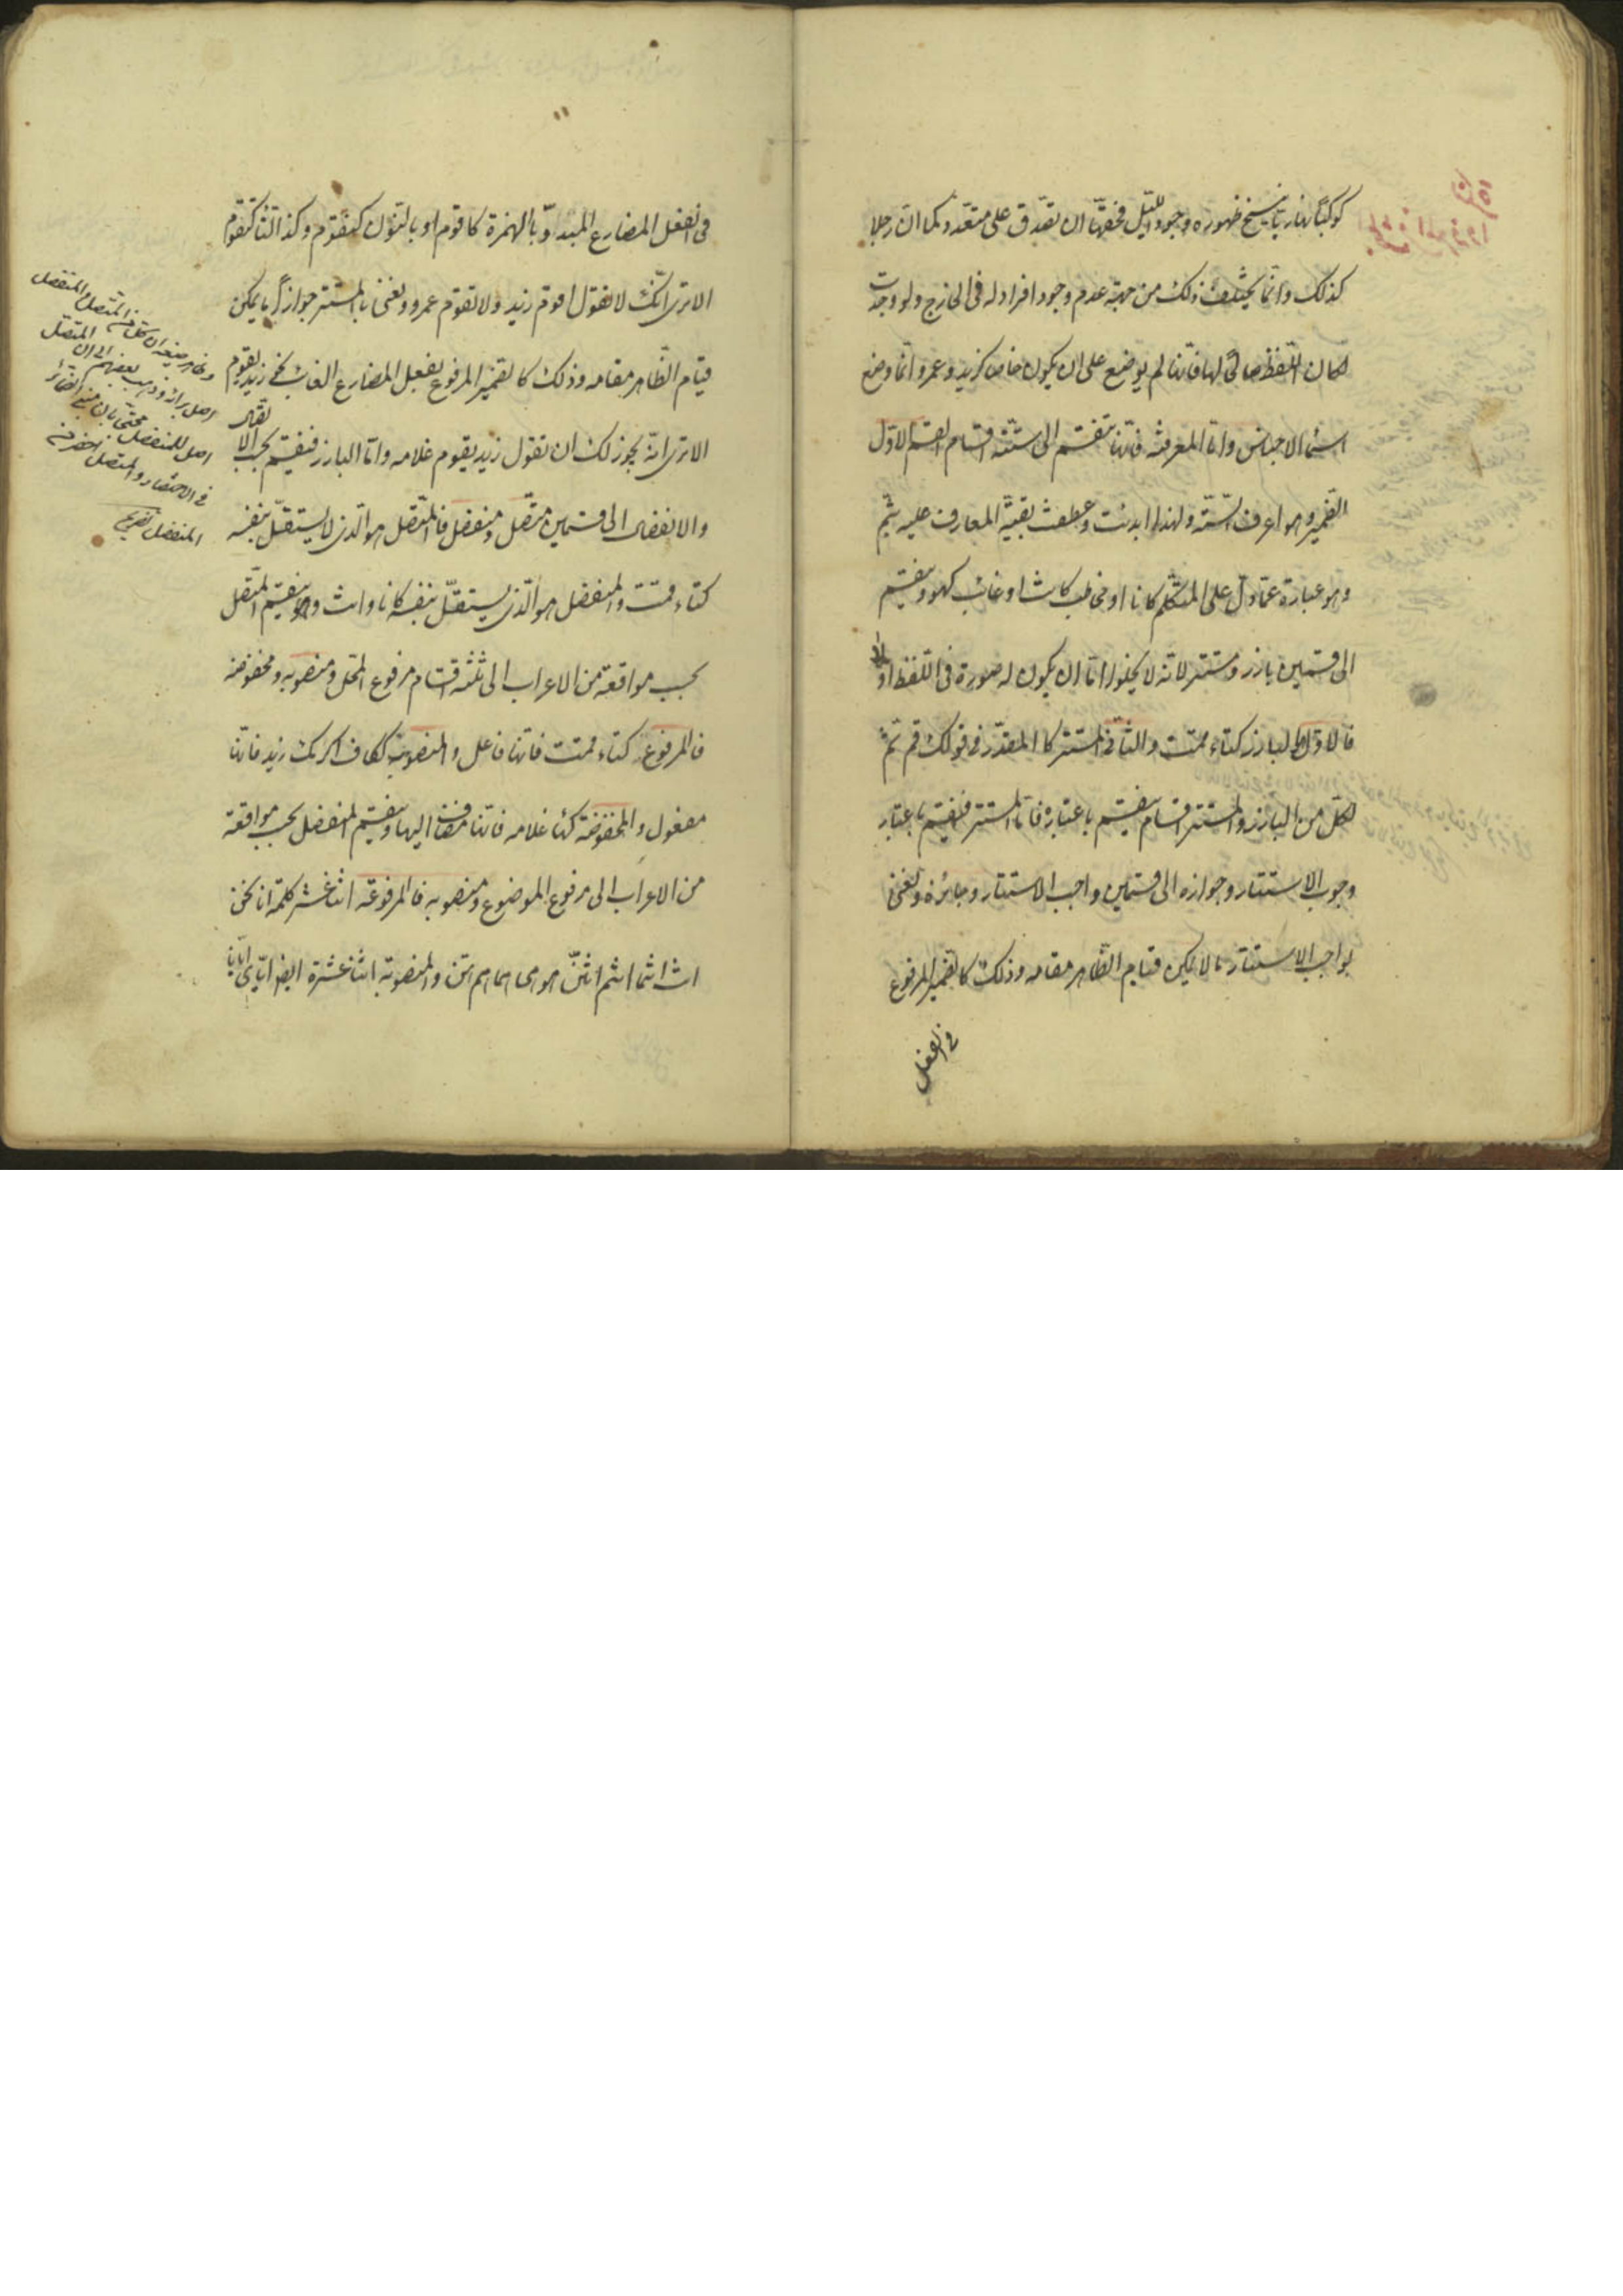 كوكبًا نهاريّا ينسخ ظهوره وجود اللّيل فحقّها ان تصدق على متعدّد كما انّ رجلا
كذلك وانّما يختلف ذلك من جهة عدم وجود افراد له فى الخارج ولو وجدت
لكان اللّفظ صالحًا لها فانّها لم يوضع على ان يكون خاصّا كزيد وعمرو انّما وضع
اسماء الاجناس وامّا المعرفة فانّها تنقسم الى ستّة اقسام القسم الاوّل
الضّمير وهو اعرف السّتّة ولهذا ابدئت وعطفت بقيّة المعارف عليه بثمّ
وهو عبارة عمّا دلّ على المتكلّم كانا او مخاطب كانت او غائب كهو وينقسم
الى قسمين بارز ومستتر لانّه لا يخلوا امّا ان يكون له صورة فى اللّفظ او لا
فالاوّل البارز كتاء قمت والثّانى المستتر كالمقدّر فى قولك قم ثمّ
لكلّ من البارز والمستتر اقسام ينقسم باعتباره فامّا المستتر فينقسم باعتبار
وجوب الاستتار وجوازه الى قسمين واجب الاستتار وجائزه ونعنى
بواجب الاستتار ما لا يمكن قيام الظّاهر مقامه وذلك كالضّمير المرفوع
فى الفعل
فى الفعل المضارع المبدوّ بالهمزة كاقوم او بالنّون كنقوم وكذا التّاء كتقوم
الا ترى انّك لا تقول اقوم زيد ولا تقوم عمرو ونعنى بالمستتر جوازًا ما يمكن
قيام الظّاهر مقامه وذلك كالضّمير المرفوع بفعل المضارع الغائب نحو زيد يقوم
الا ترى انّه يجوز لك ان تقول زيد يقوم غلامه وامّا البارز فينقسم بحسب الاتّصال
والانفصال الى قسمين متّصل ومنفصل فالمتّصل هو الّذى لا يستقلّ بنفسه
كتاء قمت والمنفصل هو الّذى يستقلّ بنفسه كانا وانت وهو وينقسم المتّصل
بحسب مواقعه من الاعراب الى ثلثة اقسام مرفوع المحلّ ومنصوبه ومخفوضه
فالمرفوعة كتاء قمت فانّها فاعل والمنصوبة ككاف اكرمك زيد فانّها
مفعول والمخفوضة كهاء غلامه فانّها مضاف اليها وينقسم المنفصل بحسب مواقعه
من الاعراب الى مرفوع الموضوع ومنصوبه فالمرفوعة اثنا عشر كلمة انا نحن
انت انتما انتم انتنّ هو هى هما هم هنّ والمنصوبة اثنا عشرة ايضا ايّاى ايّانا
وظاهر صنيعه ان كل من المتصل والمنفصل
اصل برأسه وذهب بعضهم الى ان المتصل
اصل للمنفصل محتجّا بان مبنى الضمائر
فى الاختصار والمتصل اخصر من
المنفصل تصريح